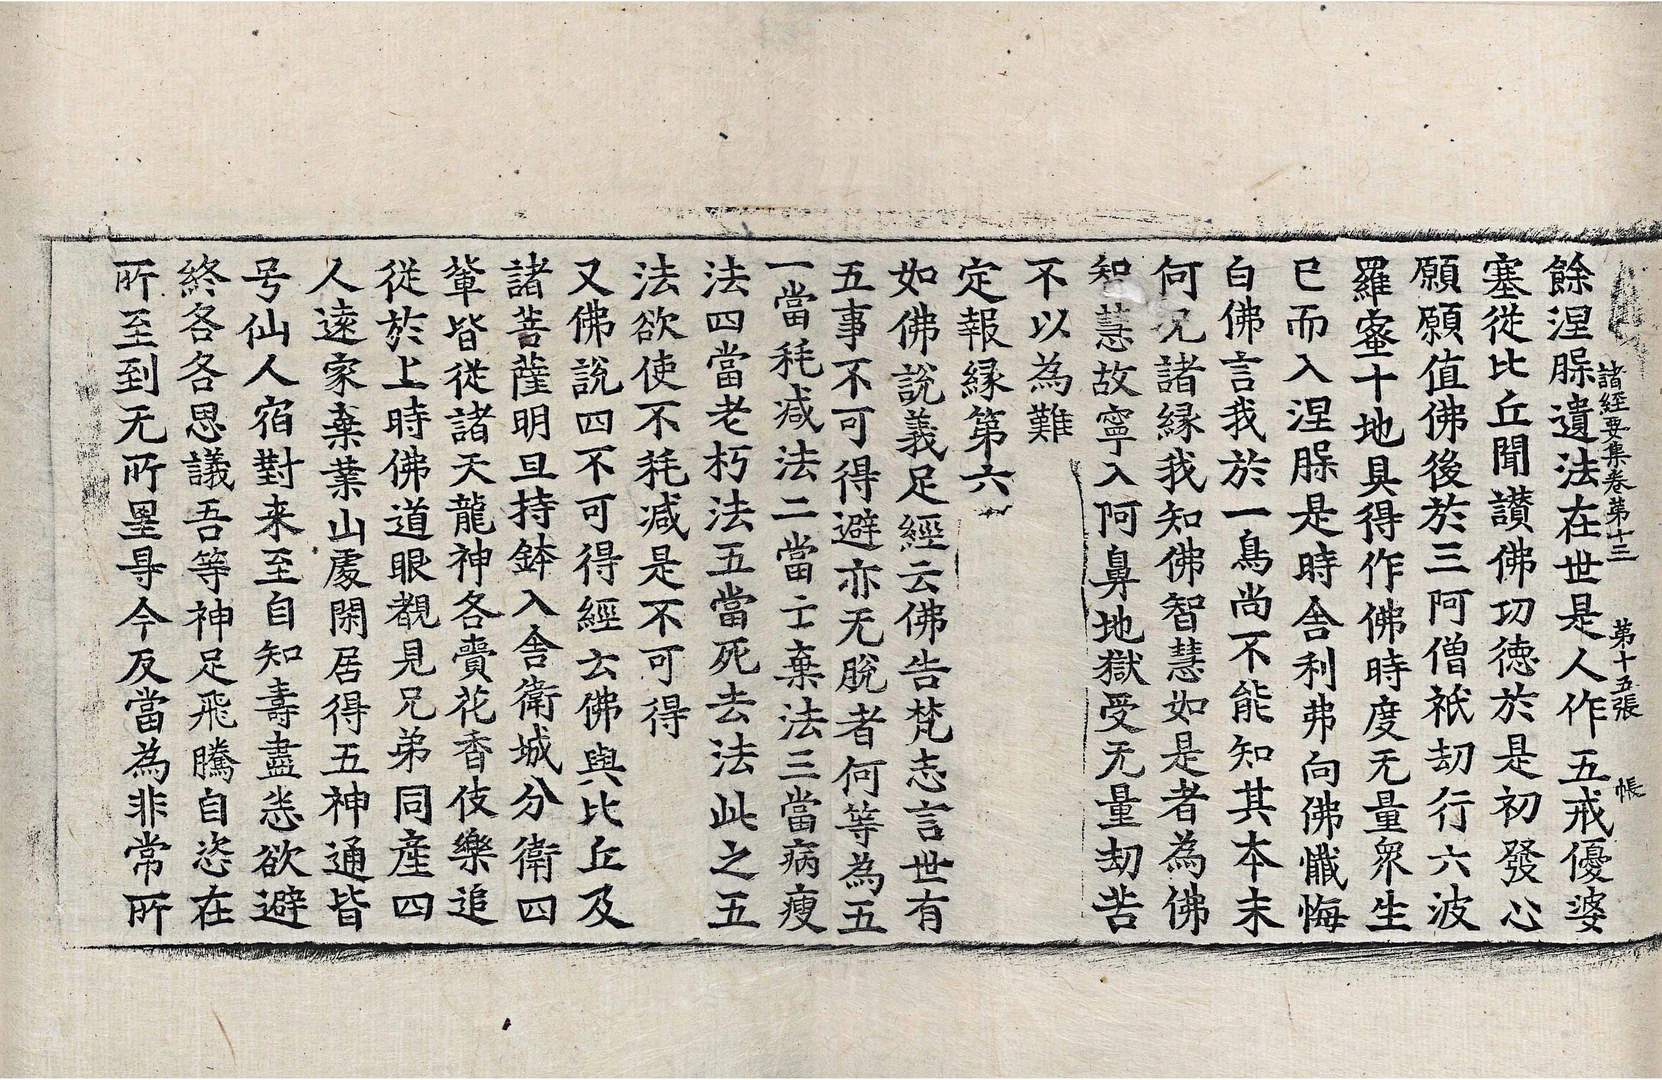 諸經要集卷第十三　第十五張　帳
餘涅槃遺法在世是人作五戒優婆
塞從比丘聞讃佛功徳於是初發心
願願值佛後於三阿僧祇劫行六波
羅蜜十地具得作佛時度无量眾生
已而入涅槃是時舍利弗向佛懺悔
白佛言我於一鳥尚不能知其本末
何況諸縁我知佛智慧如是者為佛
智慧故寧入阿鼻地獄受无量劫苦
不以為難
定報縁第六
如佛說義足經云佛告梵志言世有
五事不可得避亦无脫者何等為五
一當秏減法二當亡棄法三當病瘦
法四當老朽法五當死去法此之五
法欲使不秏減是不可得
又佛說四不可得經云佛與比丘及
諸菩薩明旦持鉢入舍衛城分衛四
輩皆從諸天龍神各賷花香伎樂追
從於上時佛道眼覩見兄弟同產四
人遠家棄業山處閑居得五神通皆
号仙人宿對来至自知壽盡悉欲避
終各各思議吾等神足飛騰自恣在
所至到无所罣㝵今反當為非常所